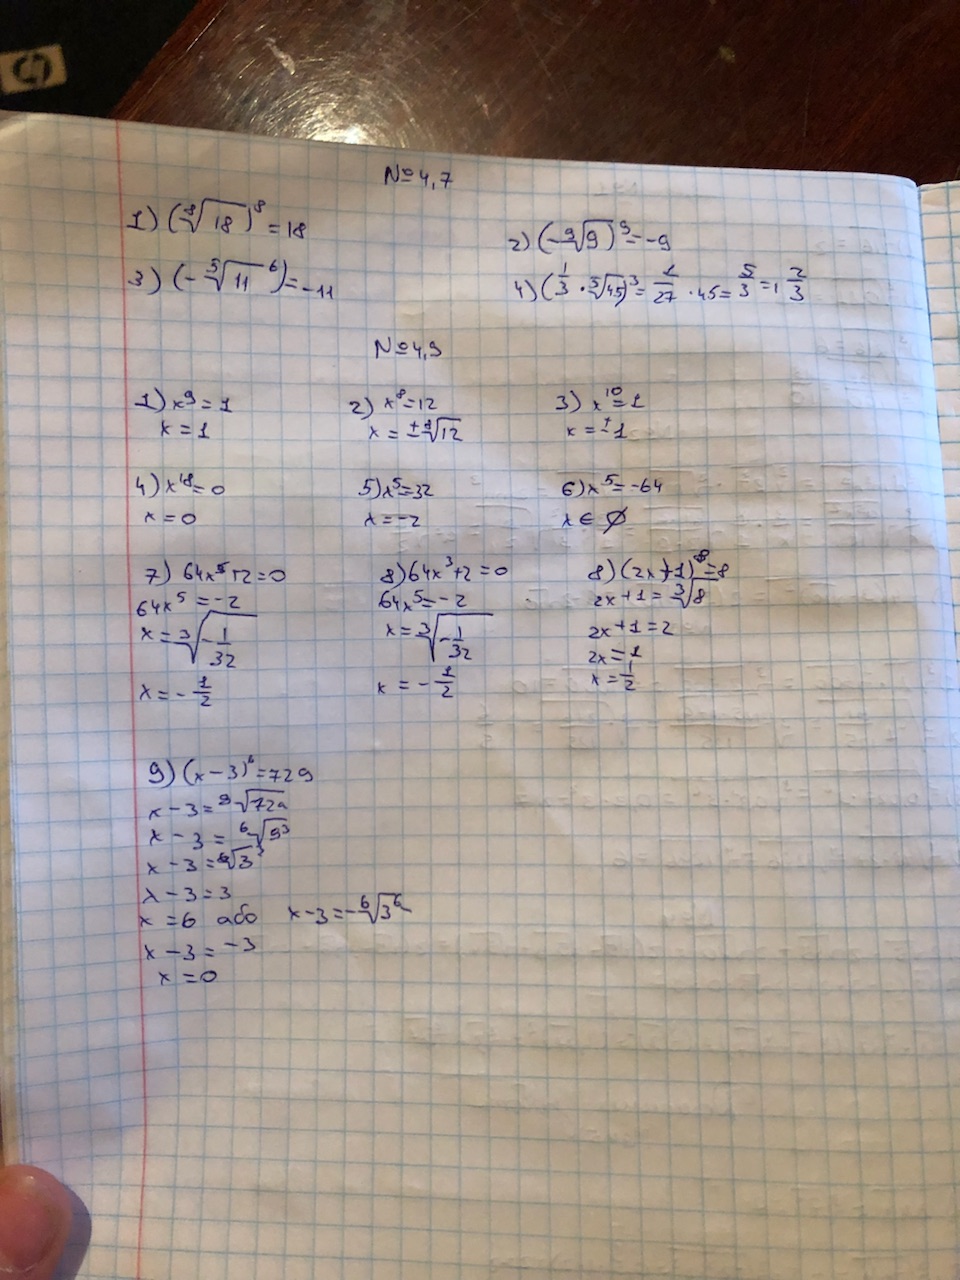 hp
№ 4,7
1) (⁸√18)⁸ = 18
2) (-⁹√9)⁹ = -9
3) (-⁵√11⁶) = -11
4) (1/3 · ³√45)³ = 1/27 · 45 = 5/3 = 1 2/3
№ 4,9
1) x⁹ = 1
x = 1
2) x⁸ = 12
x = ±⁸√12
3) x¹⁰ = 1
x = ±1
4) x¹⁸ = 0
x = 0
5) x⁵ = 32
x = -2
6) x⁵ = -64
x ∈ ∅
7) 64x⁵ + 2 = 0
64x⁵ = -2
x = ³√-1/32
x = -1/2
8) 64x³ + 2 = 0
64x⁵ = -2
x = ³√-1/32
x = -1/2
8) (2x+1)³ = 8
2x + 1 = ³√8
2x + 1 = 2
2x = 1
x = 1/2
9) (x - 3)⁶ = 729
x - 3 = ⁹√729
x - 3 = ⁶√9³
x - 3 = ⁶√3
x - 3 = 3
x = 6 або x - 3 = -⁶√3⁶
x - 3 = -3
x = 0